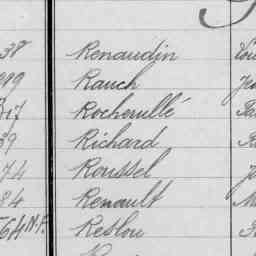 38 Renaudin
Rauch
Rocherullé
39 Richard
74 Roussel
84 Renault
564 N.F. Reslou